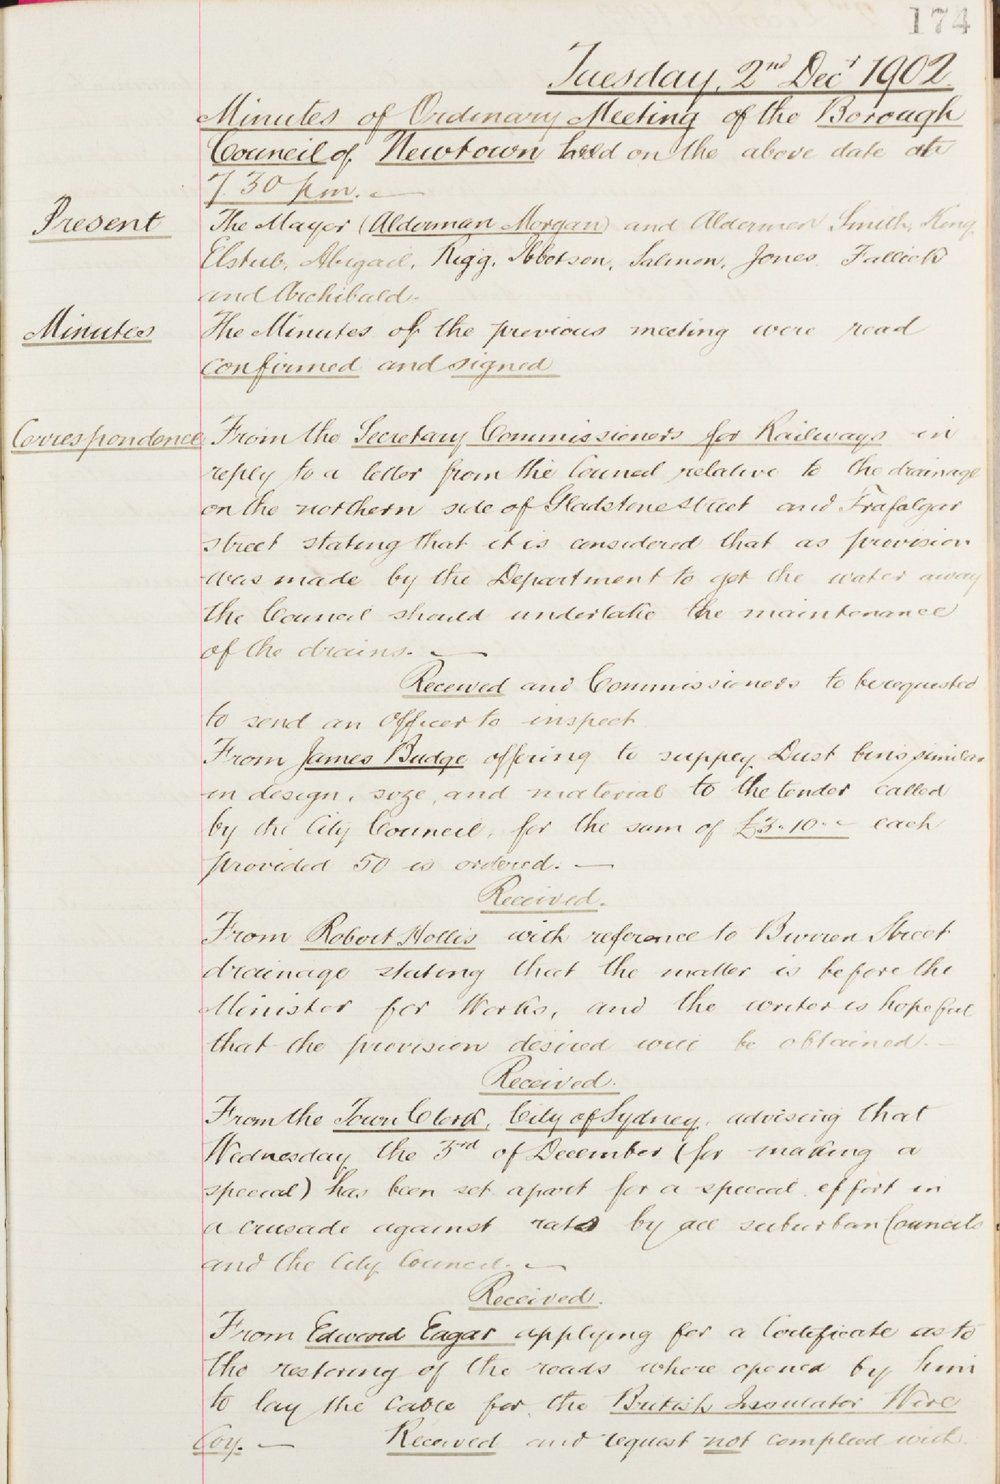 174
Tuesday, 2nd Decr 1902.
Minutes of Ordinary Meeting of the Borough
Council of Newtown held on the above date at
7.30 pm. —
Present
The Mayor (Alderman Morgan) and Aldermen Smith, King,
Elstub, Abigail, Rigg, Ibbotson, Salmon, Jones, Fallick
and Archibald.
Minutes
The Minutes of the previous meeting were read
confirmed and signed
Correspondence
From the Secretary Commissioners for Railways in
reply to a letter from the Council relative to the drainage
on the northern side of Gladstone Street and Trafalgar
Street stating that it is considered that as provision
was made by the Department to get the water away
the Council should undertake the maintenance
of the drains. —
Received and Commissioners to be requested
to send an Officer to inspect
From James Budge offering to supply Dust bins similar
in design, size, and material to the tender called
by the City Council, for the sum of £3.10.- each
provided 50 is ordered. —
Received.
From Robert Hollis with reference to Burren Street
drainage stating that the matter is before the
Minister for Works, and the writer is hopeful
that the provision desired will be obtained. —
Received.
From the Town Clerk, City of Sydney, advising that
Wednesday the 3rd of December (for making a
special) has been set apart for a special effort in
a crusade against rats by all suburban Councils
and the City Council. —
Received.
From Edward Eagar applying for a Certificate as to
the restoring of the roads where opened by him
to lay the Cable for the British Insulator Wire
Coy. — Received and request not complied with.